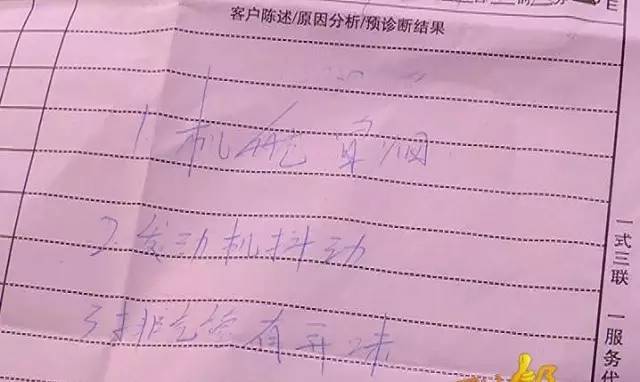 客户陈述/原因分析/预诊断结果
1.机舱冒烟
2.发动机抖动
3.排气管有异味
一式三联
一服务代